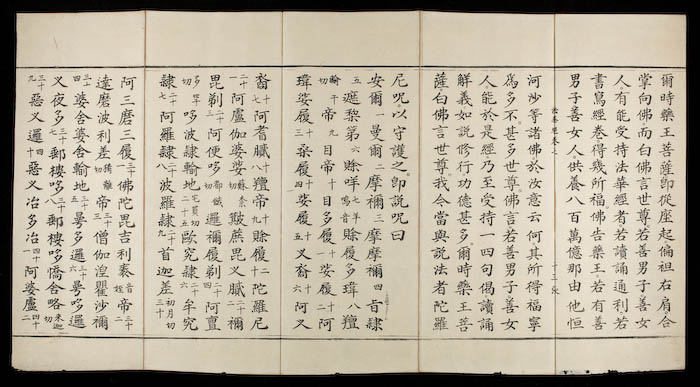 爾時藥王菩薩即從座起偏袒右肩合
掌向佛而白佛言世尊若善男子善女
人有能受持法華經者若讀誦通利若
書寫經卷得幾所福佛告藥王若有善
男子善女人供養八百萬億那由他恒
河沙等諸佛於汝意云何其所得福寧
為多不甚多世尊佛言若善男子善女
人能於是經乃至受持一四句偈讀誦
解義如說修行功德甚多爾時藥王菩
薩白佛言世尊我今當與說法者陀羅
尼呪以守護之即說呪曰
安爾一曼爾二摩禰三摩摩禰四旨隸
五遮棃第六賒咩羊鳴音七賒履多瑋八羶
輸千切帝九目帝十目多履十一娑履十二阿
瑋娑履十三桑履十四娑履十五叉裔十六阿叉
裔十七阿耆膩十八羶帝十九賒履二十陀羅尼
二十一阿盧伽婆娑蘇奈切簸蔗毘叉膩二十二禰
毘剃二十三阿便哆都餓切邏禰履剃二十四阿亶
哆都罕切波隸輸地宅買切二十五歐究隸二十六牟究
隸二十七阿羅隸二十八波羅隸二十九首迦差初几切三十
阿三磨三履三十一佛陀毘吉利袠音姪帝三十二
達磨波利差猜離切帝三十三僧伽涅瞿沙禰
三十四婆舍婆舍輸地三十五曼哆邏三十六曼哆邏
叉夜多三十七郵樓哆三十八郵樓哆憍舍略來迦切三十
九惡叉邏四十惡叉冶多冶四十一阿婆盧四十二